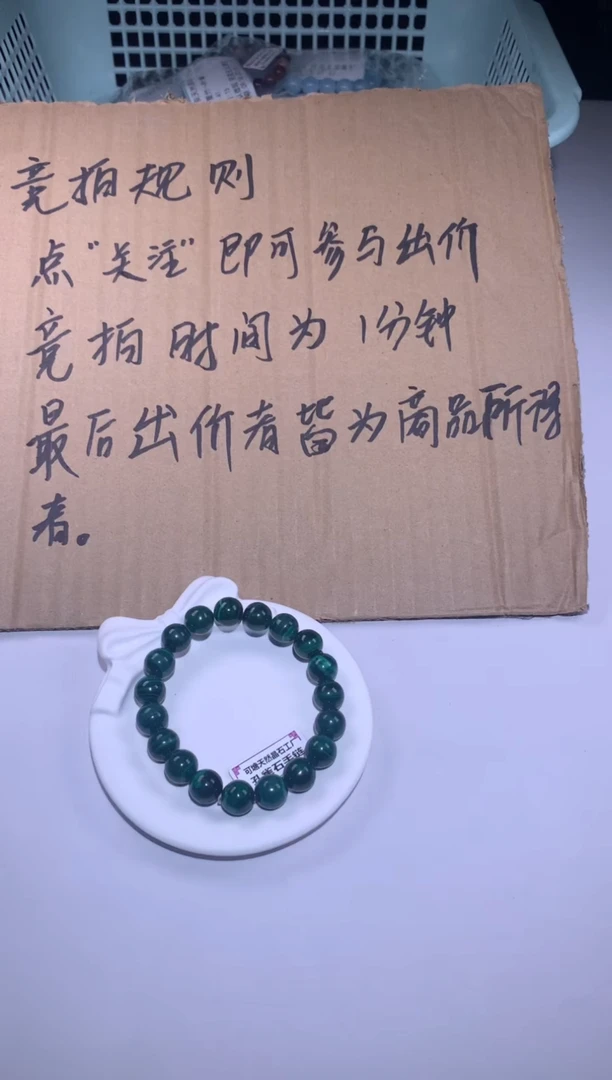 竞拍规则
点“关注”即可参与出价
竞拍时间为1分钟
最后出价者皆为商品所得
者。
可塘天然晶石工厂
孔雀石手链